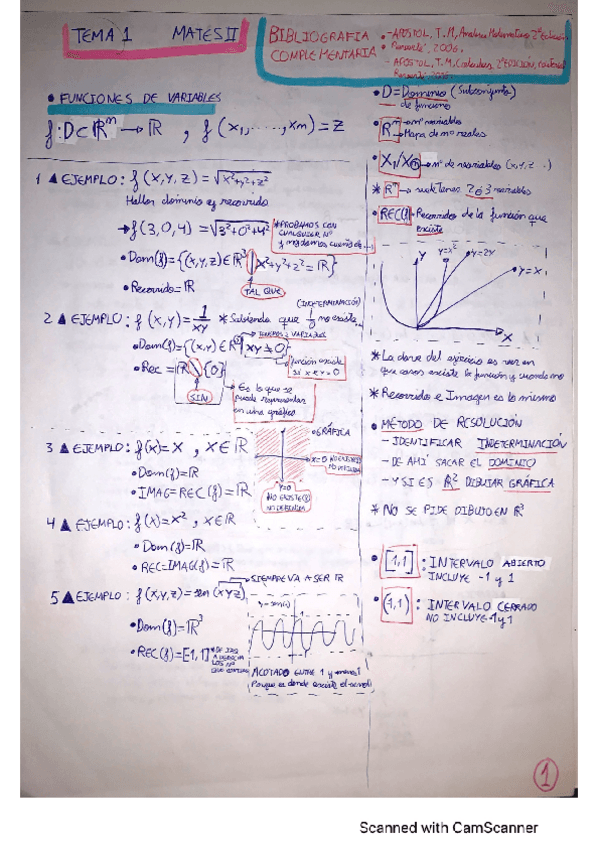 TEMA 1 MATES II
BIBLIOGRAFIA
COMPLEMENTARIA
- APOSTOL, T.M, Analisis Matematico 2ª edición,
2006.
- APOSTOL, T.M, Calculus, 2ª EDICIÓN, editorial
• FUNCIONES DE VARIABLES
f: D⊂ℝᵐ → ℝ , f(x₁,.....,xm) = z
1 ▲ EJEMPLO: f(x,y,z) = √x²+y²+z²
Hallar dominio y recorrido
→ f(3,0,4) = √3²+0²+4²
* PROBAMOS CON
CUALQUIER Nº
• Dom(f)={(x,y,z)∈ℝ³ | x²+y²+z² = ℝ}
• Recorrido = ℝ
TAL QUE
2 ▲ EJEMPLO: f(x,y) = 1/xy * Sabiendo que 1/0 no existe
(INDETERMINACIÓN)
• Dom(f)={(x,y)∈ℝ² | xy≠0}
función existe
• Rec = ℝ \ {0}
SIN
→ Es lo que se
puede representar
en una gráfica
3 ▲ EJEMPLO: f(x)=x , x∈ℝ
• Dom(f)=ℝ
• IMAG=REC(f)=ℝ
• GRÁFICA
y=0
NO EXISTE
4 ▲ EJEMPLO: f(x)=x² , x∈ℝ
• Dom(f)=ℝ
• REC=IMAG(f)=ℝ
5 ▲ EJEMPLO: f(x,y,z)=sen(xyz)
→ SIEMPRE VA A SER ℝ
• Dom(f)=ℝ³
• REC(f)=[-1,1]
ACOTADO ENTRE 1 y menos 1
Porque es donde existe el seno
• D = Dominio (Subconjunto)
de función
• ℝᵐ → nº variables
→ Mapa de nº reales
• X₁/Xm → nº de variables (x,y,z..)
* ℝᵐ → suele tener 2 ó 3 variables
• REC(f) - Recorrido de la función que
existe
y y=x² y=2x
y=x
x
* La clave del ejercicio es ver en
que casos existe la función y cuando no
* Recorrido e Imagen es lo mismo
• MÉTODO DE RESOLUCIÓN
- IDENTIFICAR INDETERMINACIÓN
- DE AHÍ SACAR EL DOMINIO
- Y SI ES ℝ² DIBUJAR GRÁFICA
* NO SE PIDE DIBUJO EN ℝ³
• [-1,1] : INTERVALO ABIERTO
INCLUYE -1 y 1
• (-1,1) : INTERVALO CERRADO
NO INCLUYE -1 y 1
1
Scanned with CamScanner